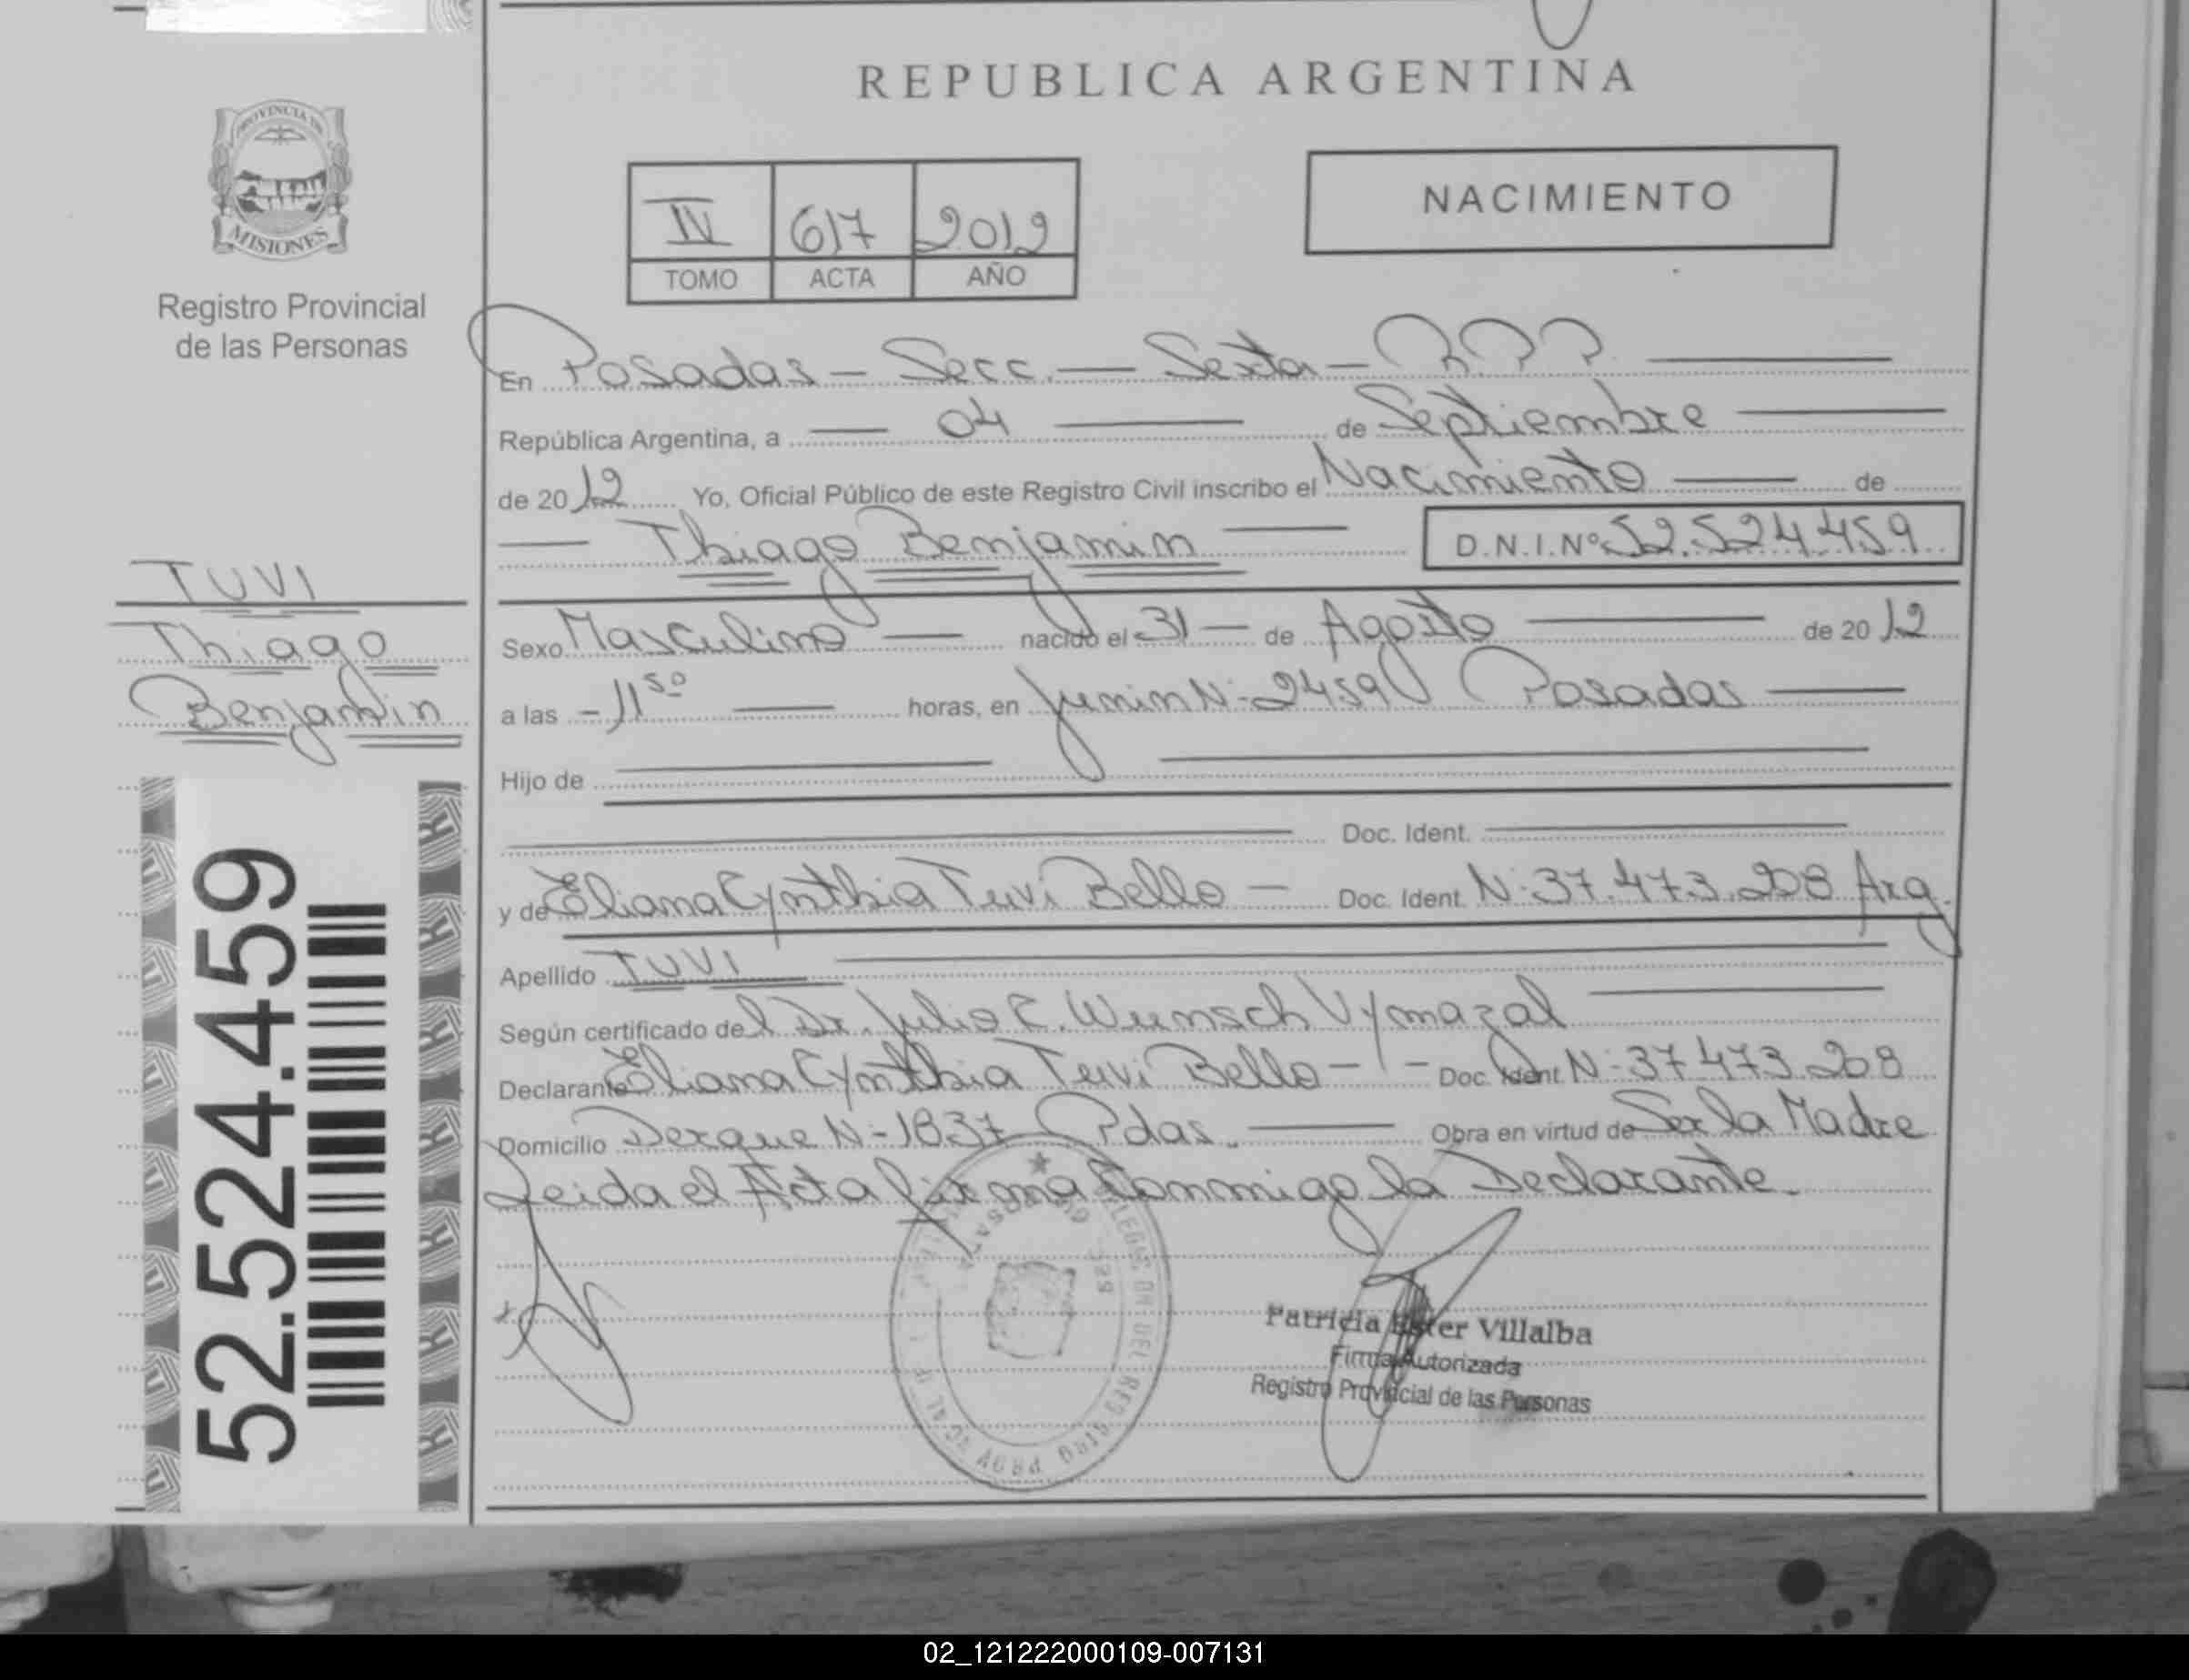 REPUBLICA ARGENTINA
PROVINCIA DE
MISIONES
Registro Provincial
de las Personas
NACIMIENTO
IV 617 2012
TOMO ACTA AÑO
En Posadas - Secc. - Sexta - R.P.P.
República Argentina, a 04 de Septiembre
de 2012 Yo, Oficial Público de este Registro Civil inscribo el Nacimiento de
Thiago Benjamin D.N.I.Nº 52.524.459
TUVI
Thiago
Benjamin
52.524.459
Sexo Masculino nacido el 31 de Agosto de 2012
a las - 11 50 horas, en Junin N- 2459 Posadas
Hijo de
Doc. Ident.
y de Eliana Cynthia Tuvi Bello - Doc. Ident. N- 37.473.208 Arg.
Apellido TUVI
Según certificado del Dr. Julio C. Wunsch Vymazal
Declarante Eliana Cynthia Tuvi Bello - - Doc. Ident. N- 37.473.208
Domicilio Derque N- 1837 Pdas. Obra en virtud de Ser la Madre
Leida el Acta firma Conmigo la Declarante.
Patricia Ester Villalba
Firma Autorizada
Registro Provincial de las Personas
02_121222000109-007131